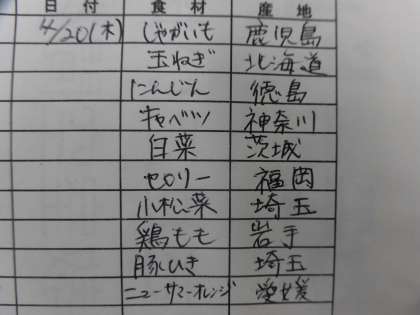 日付 食材 産地
4/20(木) じゃがいも 鹿児島
玉ねぎ 北海道
にんじん 徳島
キャベツ 神奈川
白菜 茨城
セロリー 福岡
小松菜 埼玉
鶏もも 岩手
豚ひき 埼玉
ニューサマーオレンジ 愛媛